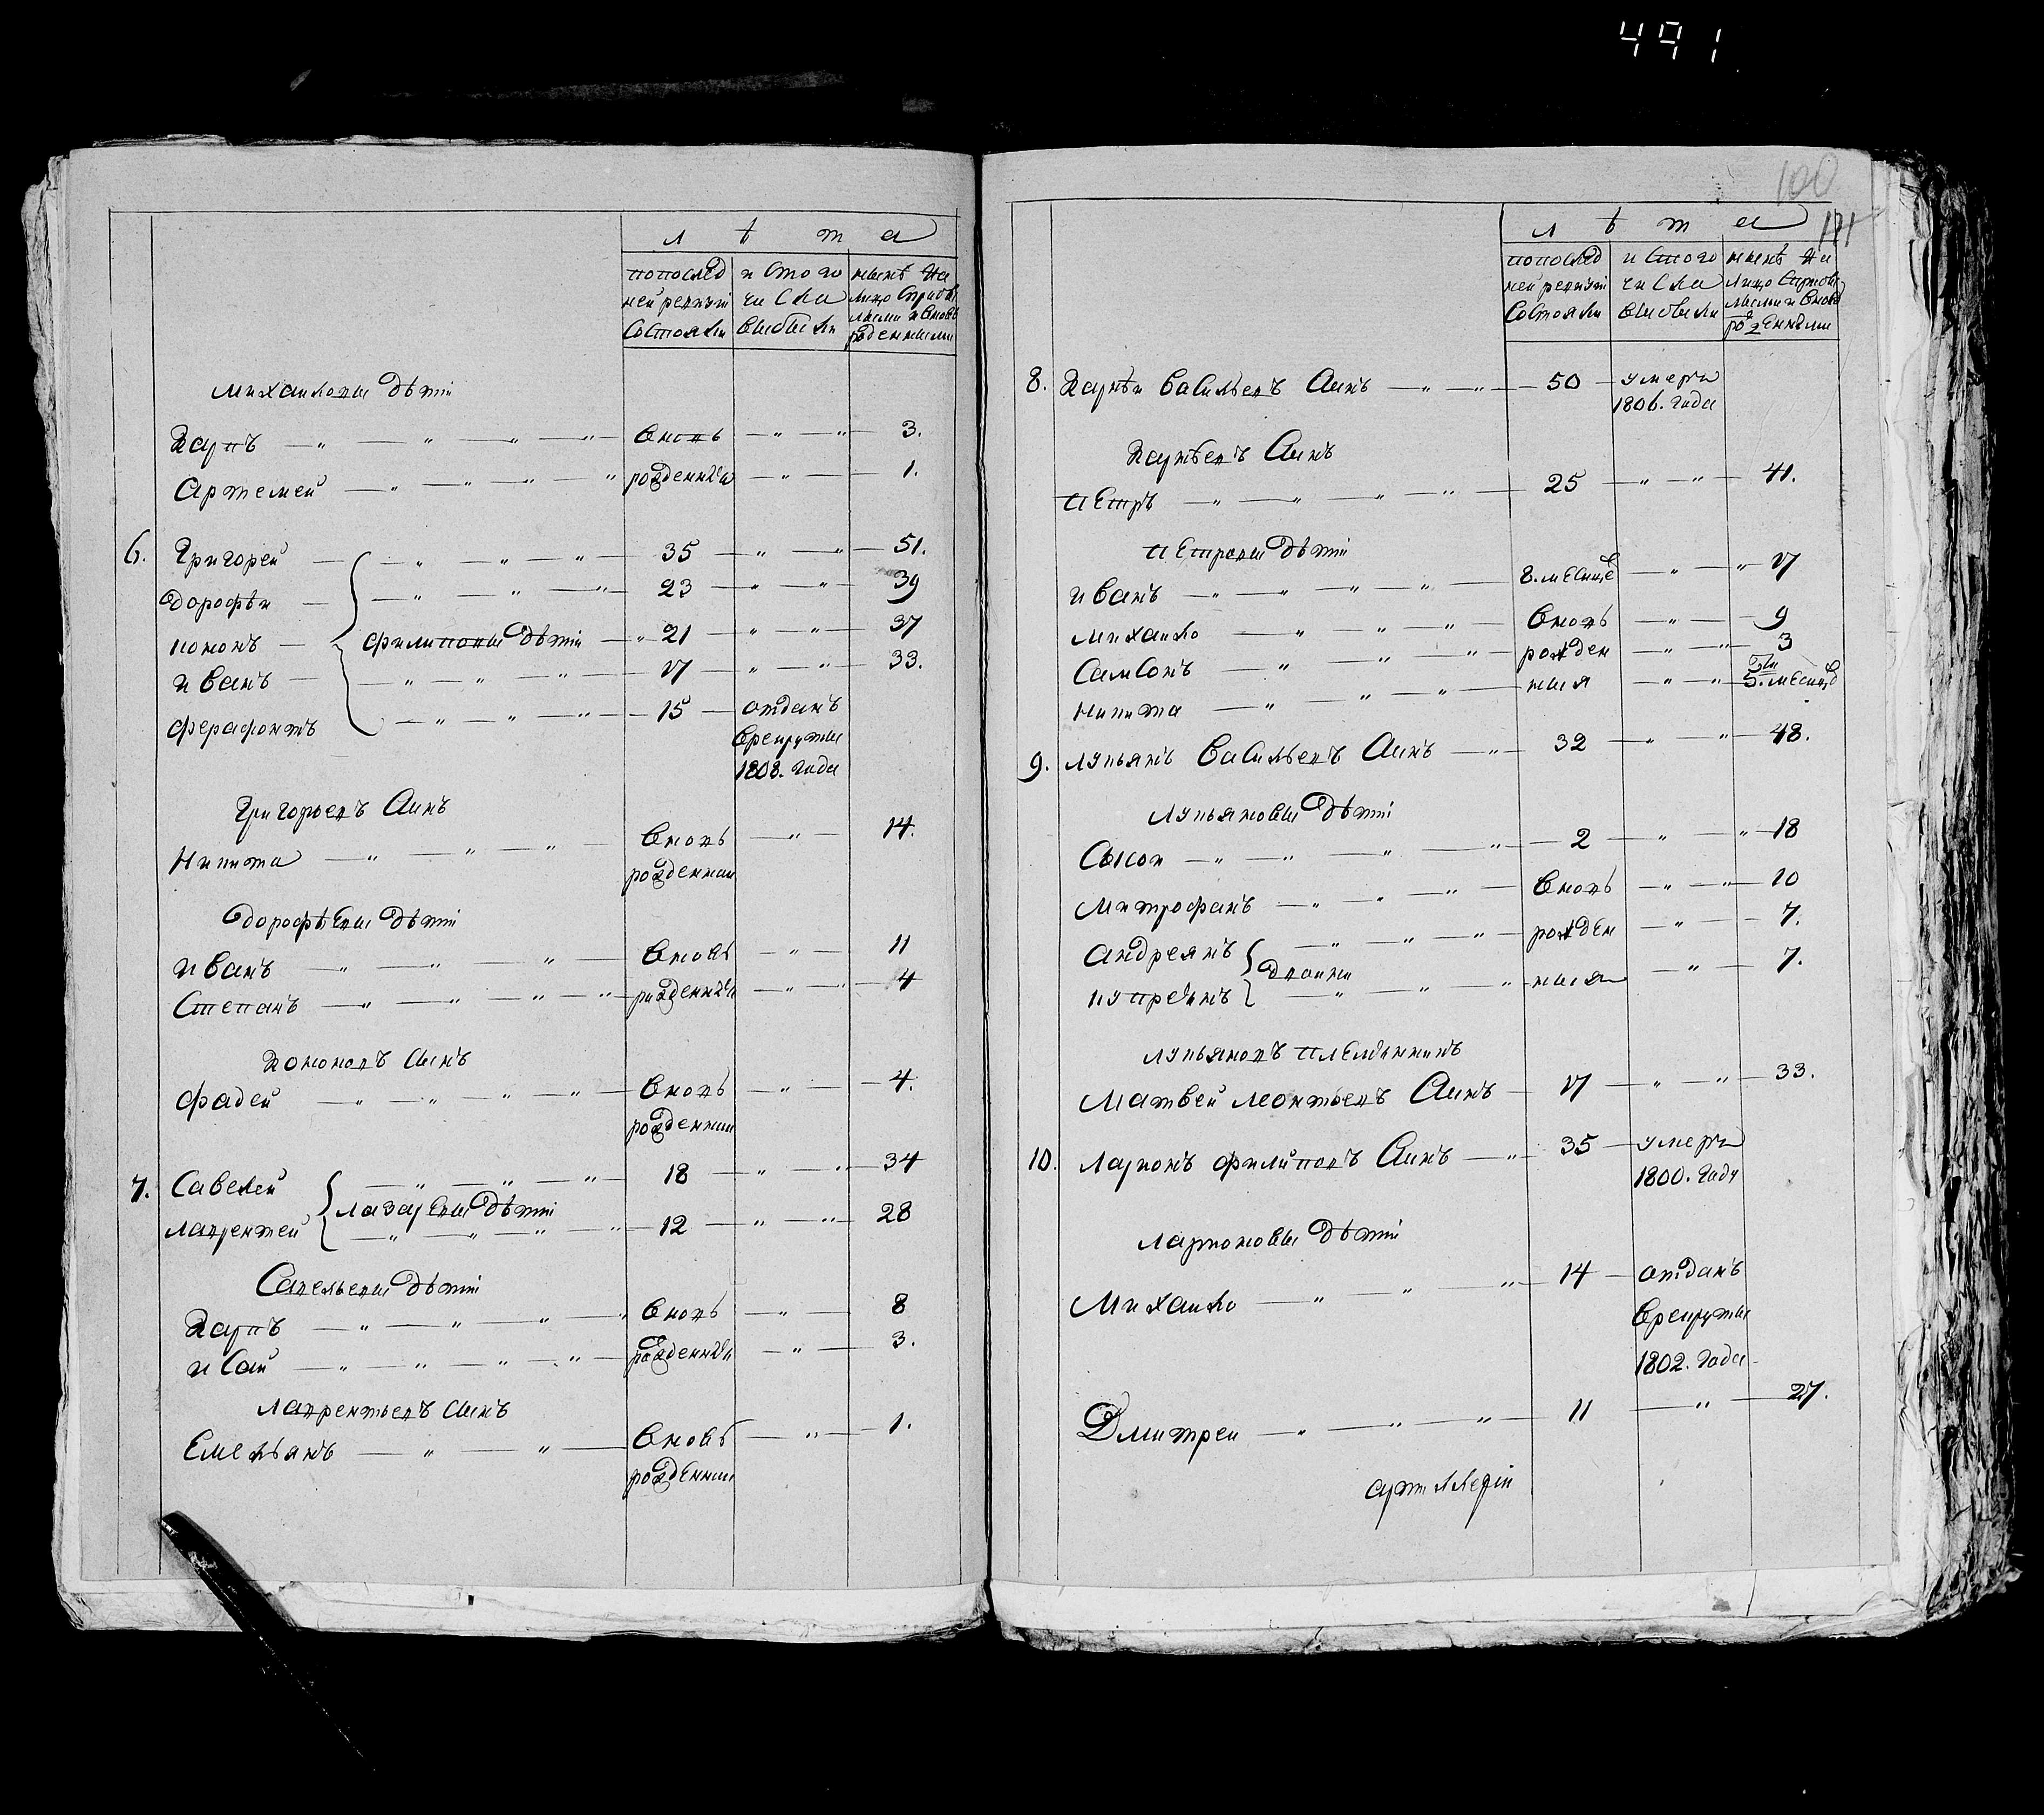 491
лѣта
попослѣд и стого нынѣ на
ней ревизіи числа лицо сприбы
состояли выбыли лыми и вновь
рожденными
Михайловы Дѣти
Карпъ вновь 3.
Артемей рожденныя 1.
6. Григорей 35 51.
Дорофѣи 23 39
Кононъ Филиповы Дѣти 21 37
Иванъ 17 33.
Ферафонтъ 15 отданъ
врекруты
1808. года
Григорьевъ Сынъ
Никита вновь 14.
рожденныи
Дорофѣевы Дѣти
Иванъ вновь 11
Степанъ рожденныя 4
Кононовъ Сынъ
Фадей вновь 4.
рожденныи
7. Савелей 18 34
Лазаревы Дѣти
Лаврентей 12 28
Савельевы Дѣти
Карпъ вновь 8
Исай рожденныя 3.
Лаврентьевъ Сынъ
Емельянъ вновь 1.
рожденныи
100
лѣта
попослѣд и стого нынѣ на
ней ревизіи числа лицо сприбы
состояли выбыли лыми и вновь
рожденными
8. Карпѣи Васильевъ Сынъ 50 умеръ
1806. года
Карпѣевъ Сынъ
Петръ 25 41.
Петровы Дѣти
Иванъ 8. месяце 17
Михайло вновь 9
Самсонъ рожден 3
Никита ныя 5. месяце
9. Лукьянъ Васильевъ Сынъ 32 48.
Лукьяновы Дѣти
Сысой 2 18
Митрофанъ вновь 10
Андреянъ рожден 7.
двойни
Купреянъ ныя 7.
Лукьяновъ племянникъ
Матвей Леонтьевъ Сынъ 17 33.
10. Ларионъ Филиповъ Сынъ 35 умеръ
1800. году
Ларионовы Дѣти
Михайло 14 отданъ
врекруты
1802. года
Дмитреи 11 27.